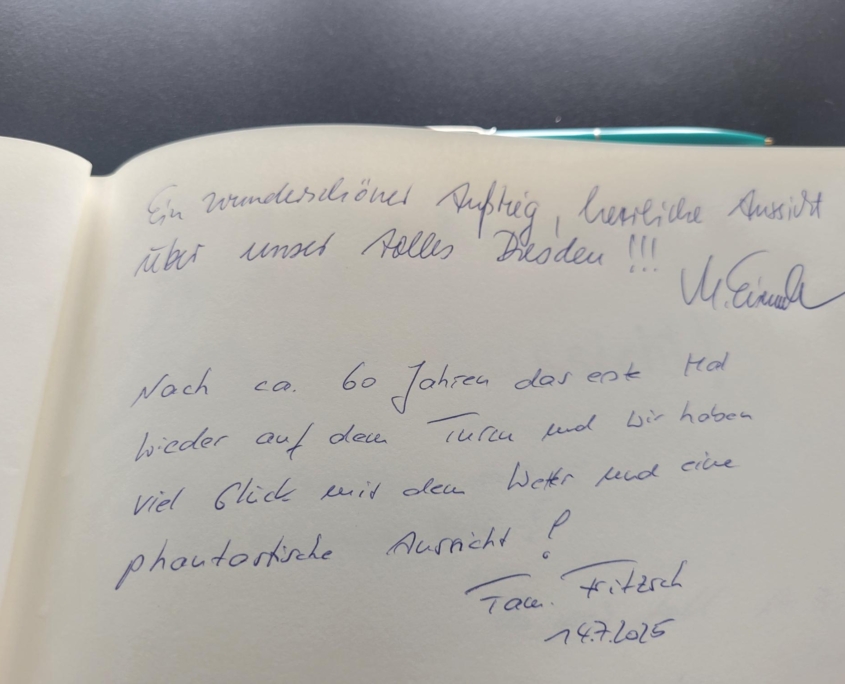 Ein wunderschöner Aufstieg, herrliche Aussicht
über unser tolles Dresden !!!
Nach ca. 60 Jahren das erste Mal
wieder auf dem Turm und wir haben
viel Glück mit dem Wetter und eine
phantastische Aussicht !
Fam. Fritzsch
14.7.2025